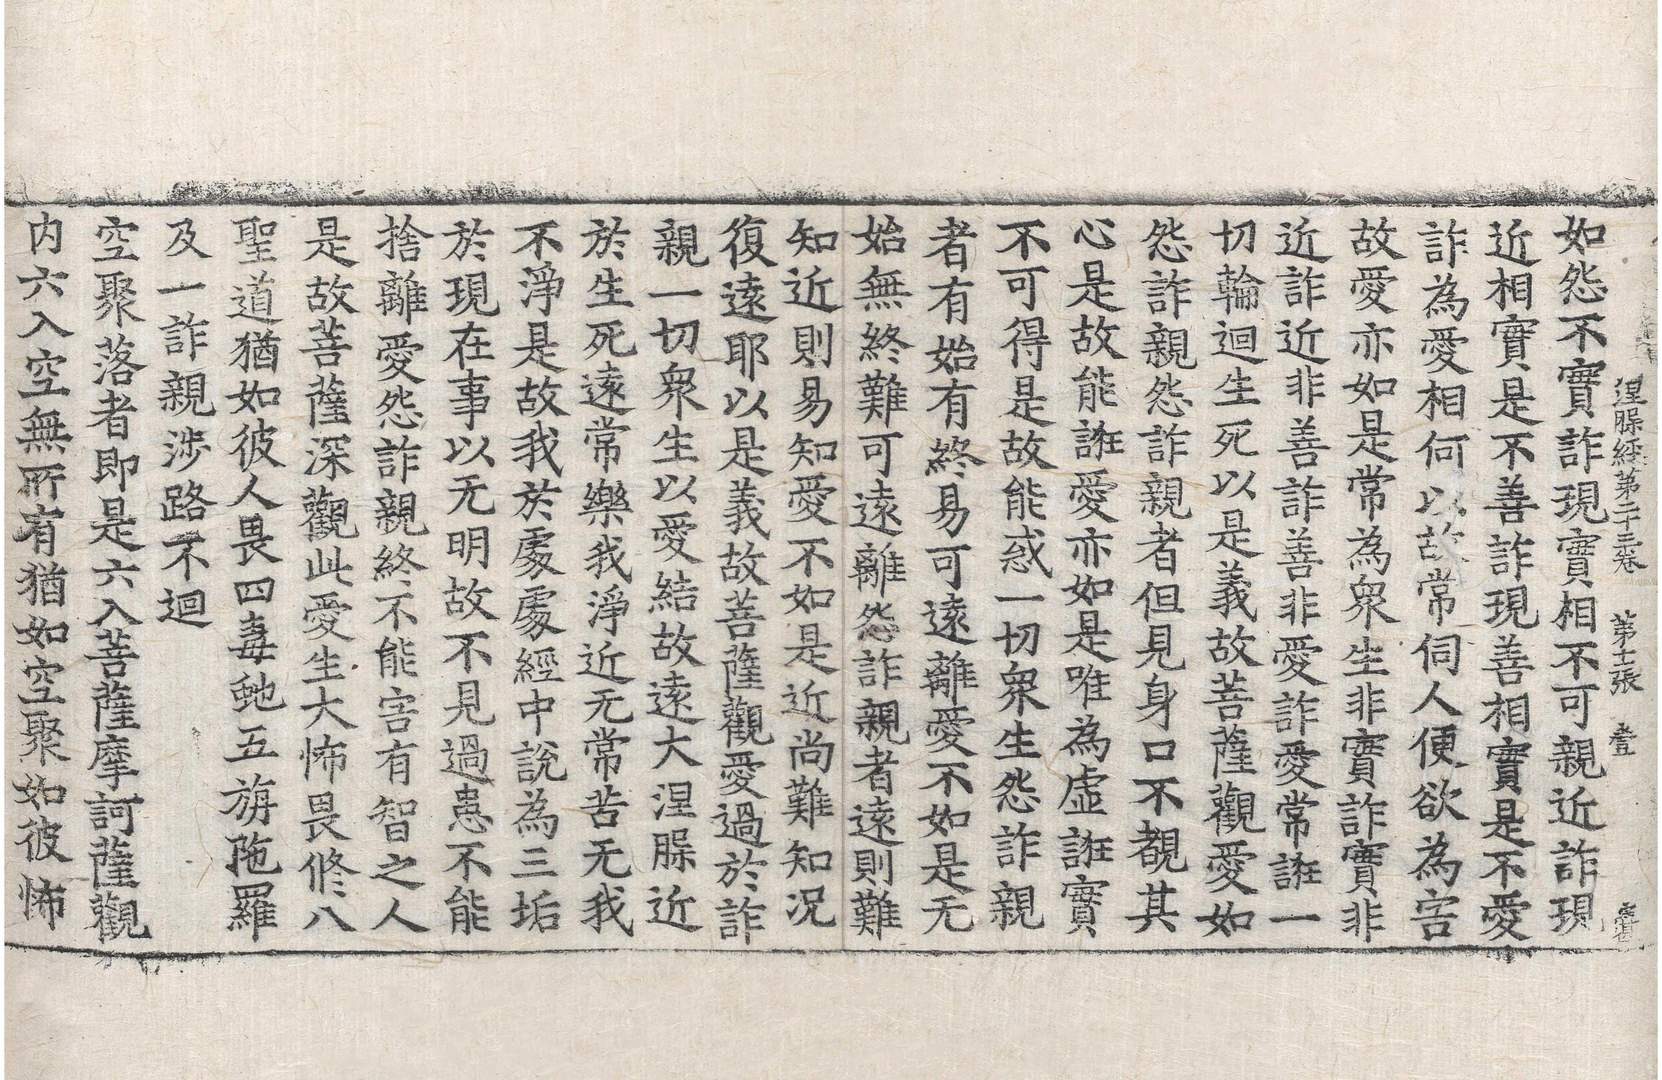 涅槃經第二十三卷　第十張　壹
如怨不實詐現實相不可親近詐現
近相實是不善詐現善相實是不愛
詐為愛相何以故常伺人便欲為害
故愛亦如是常為衆生非實詐實非
近詐近非善詐善非愛詐愛常誑一
切輪迴生死以是義故菩薩觀愛如
怨詐親怨詐親者但見身口不覩其
心是故能誑愛亦如是唯為虛誑實
不可得是故能惑一切衆生怨詐親
者有始有終易可遠離愛不如是无
始無終難可遠離怨詐親者遠則難
知近則易知愛不如是近尚難知况
復遠耶以是義故菩薩觀愛過於詐
親一切衆生以愛結故遠大涅槃近
於生死遠常樂我淨近无常苦无我
不淨是故我於處處經中說為三垢
於現在事以无明故不見過患不能
捨離愛怨詐親終不能害有智之人
是故菩薩深觀此愛生大怖畏修八
聖道猶如彼人畏四毒虵五旃陁羅
及一詐親涉路不迴
空聚落者即是六入菩薩摩訶薩觀
内六入空無所有猶如空聚如彼怖